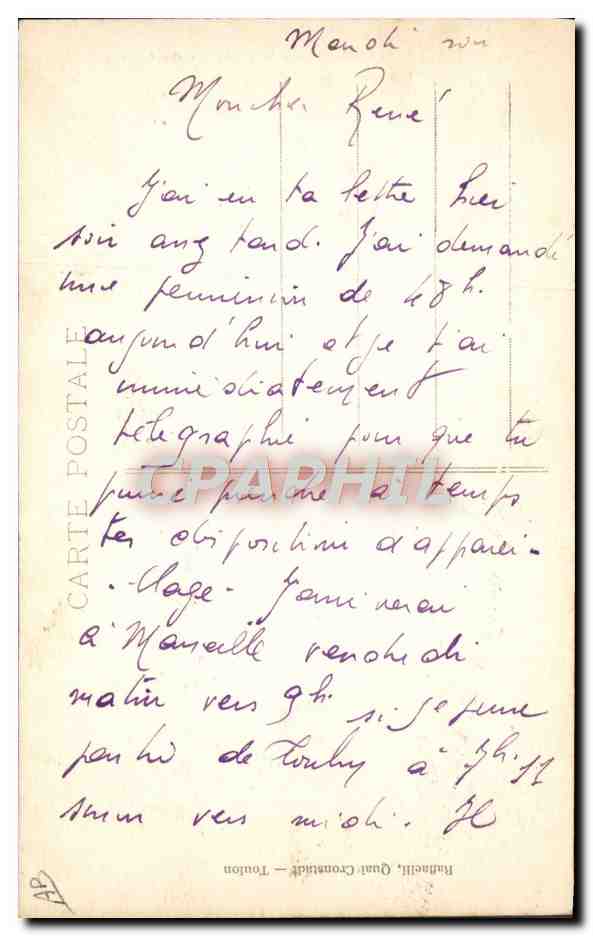 Mardi soir
Mon cher René
J'ai eu ta lettre hier
soir assez tard. J'ai demandé
une permission de 48 h.
aujourd'hui et je t'ai
immédiatement
télégraphié pour que tu
puisse prendre à temps
tes dispositions d'apparei-
-llage. J'arriverai
à Marseille vendredi
matin vers 9h. si je peux
partir de Toulon à 7h. 11
sinon vers midi. Il
CARTE POSTALE
CPAPHIL
Raffaelli, Quai Cronstadt — Toulon
AP